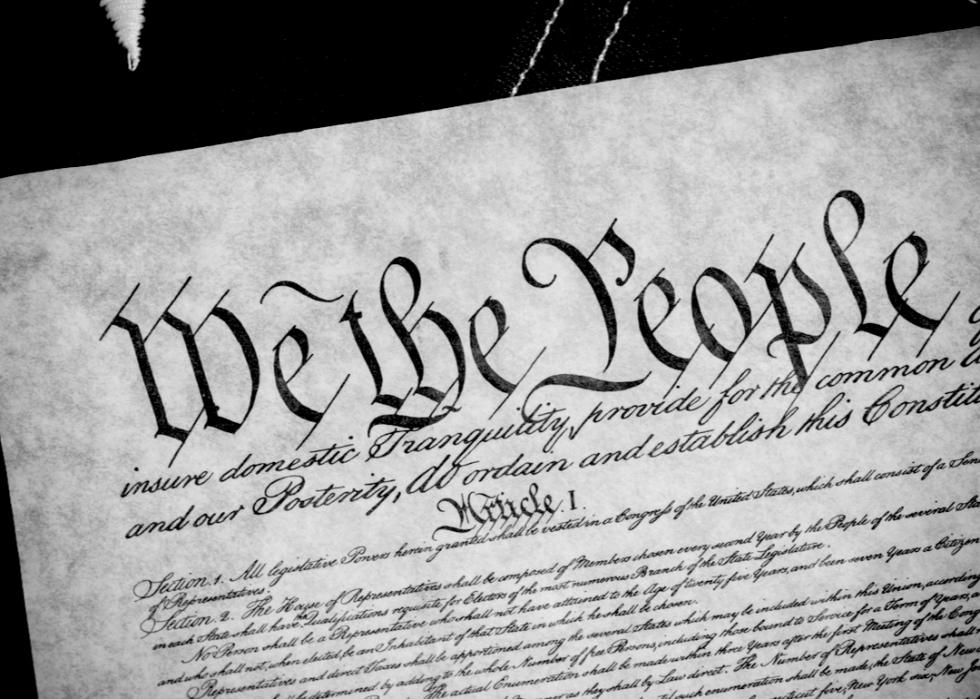 We the People
insure domestic Tranquility, provide for the common
and our Posterity, do ordain and establish this
Article. I.
Section. 1. All legislative Powers herein granted shall be vested in a Congress of the United States, which shall consist of a
of Representatives.
Section. 2. The House of Representatives shall be composed of Members chosen every second Year by the People of the several
in each State shall have the Qualifications requisite for Electors of the most numerous Branch of the State Legislature.
No Person shall be a Representative who shall not have attained to the Age of twenty five Years, and been seven Years a Citizen
and who shall not, when elected, be an Inhabitant of that State in which he shall be chosen.
Representatives and direct Taxes shall be apportioned among the several States which may be included within this Union, according
be determined by adding to the whole Number of free Persons, including those bound to Service for a Term of Years,
The actual Enumeration shall be made within three Years after the first Meeting of the
as they shall by Law direct. The Number of Representatives shall
enumeration shall be made, the State of
New York six,